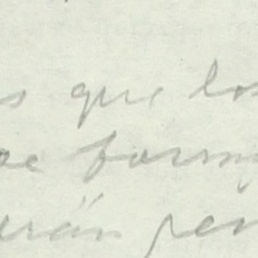 s que los
be form
erán per